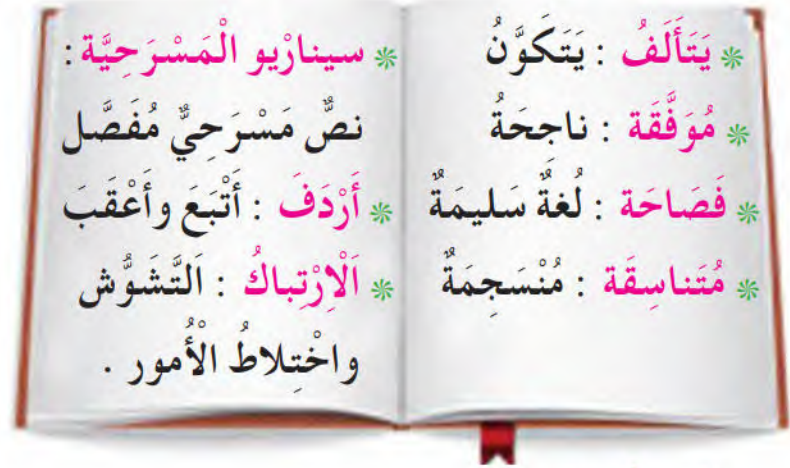 * يَتَأَلَفُ : يَتَكَوَّنُ
* مُوَفَّقَة : ناجحَةُ
* فَصَاحَة : لُغةٌ سَليمَةٌ
* مُتَناسِقَة : مُنْسَجِمَةٌ
* سيناريو الْمَسْرَحِيَّة :
نصٌّ مَسْرَحيٌّ مُفَصَّل
* أَرْدَفَ : أَتْبَعَ وأَعْقَبَ
* اَلْاِرْتِباكُ : اَلتَّشَوُّش
واخْتِلاطُ الْأُمور .